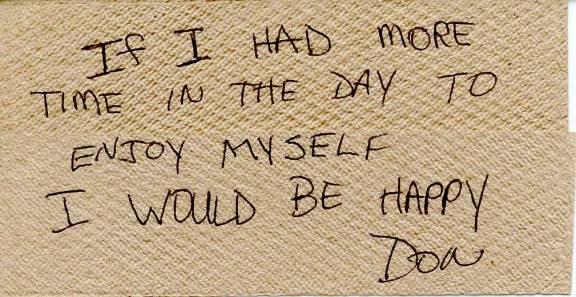 If I HAD MORE
TIME IN THE DAY TO
ENJOY MYSELF
I WOULD BE HAPPY
Don.